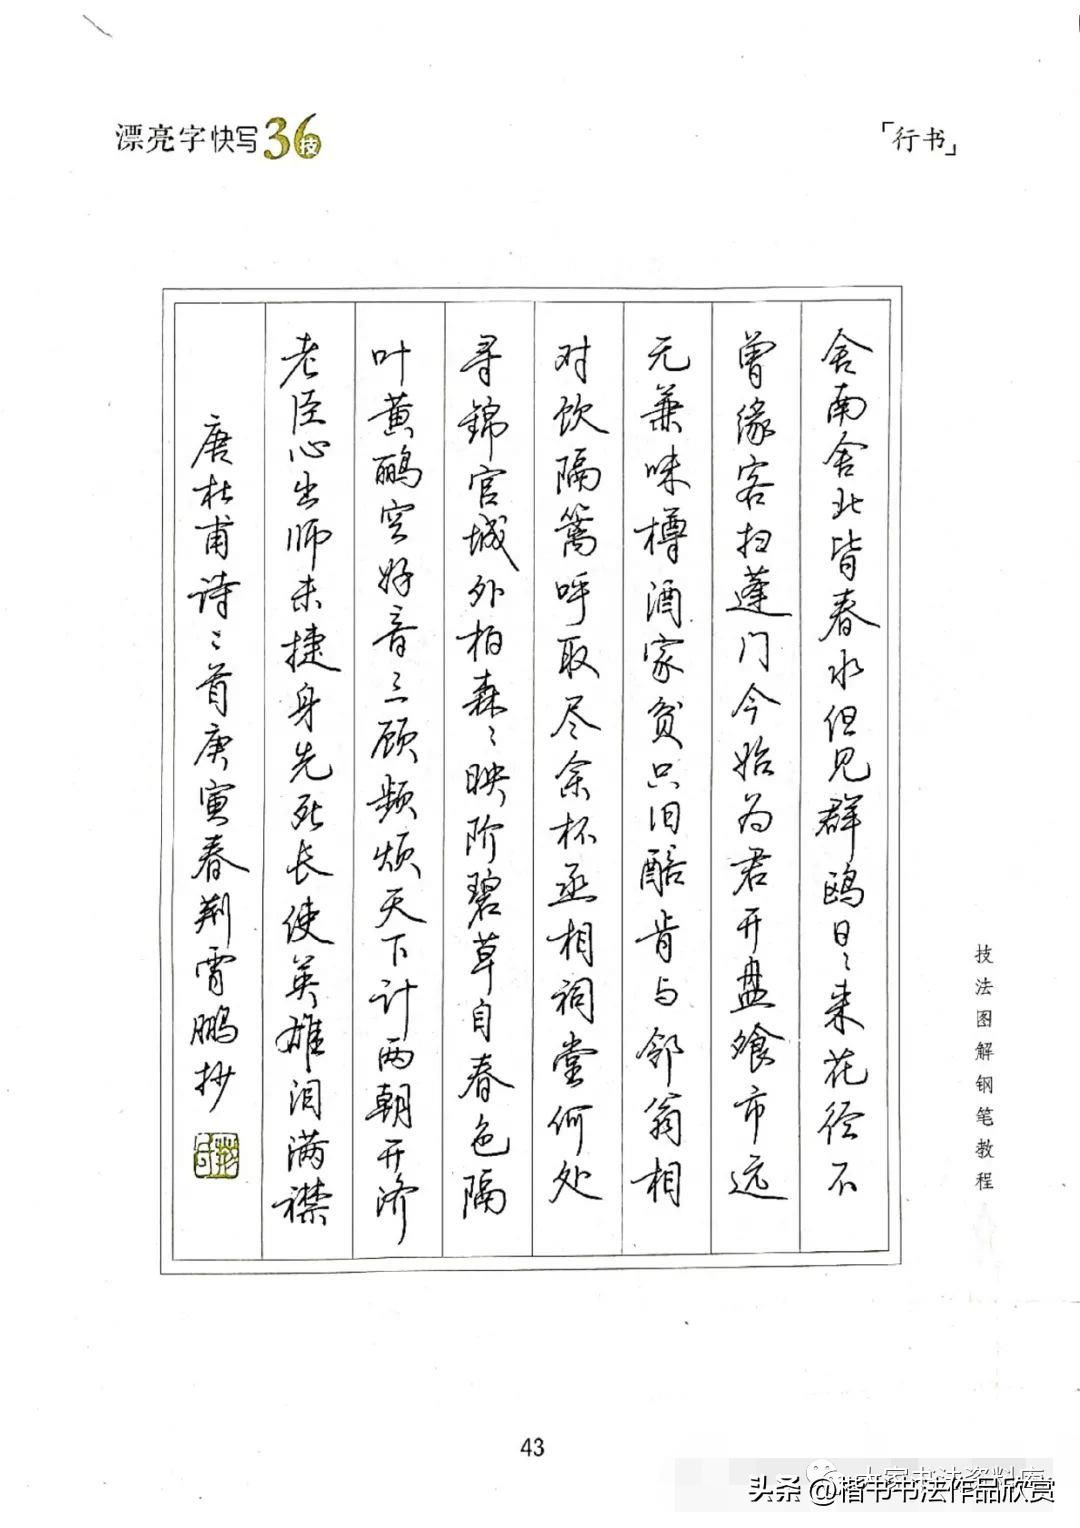 漂亮字快写36技
「行书」
舍南舍北皆春水但见群鸥日々来花径不
曾缘客扫蓬门今始为君开盘飧市远
无兼味樽酒家贫只旧醅肯与邻翁相
对饮隔篱呼取尽余杯丞相祠堂何处
寻锦官城外柏森々映阶碧草自春色隔
叶黄鹂空好音三顾频烦天下计两朝开济
老臣心出师未捷身先死长使英雄泪满襟
唐杜甫诗二首庚寅春荆霄鹏抄
技法图解钢笔教程
43
头条@楷书书法作品欣赏